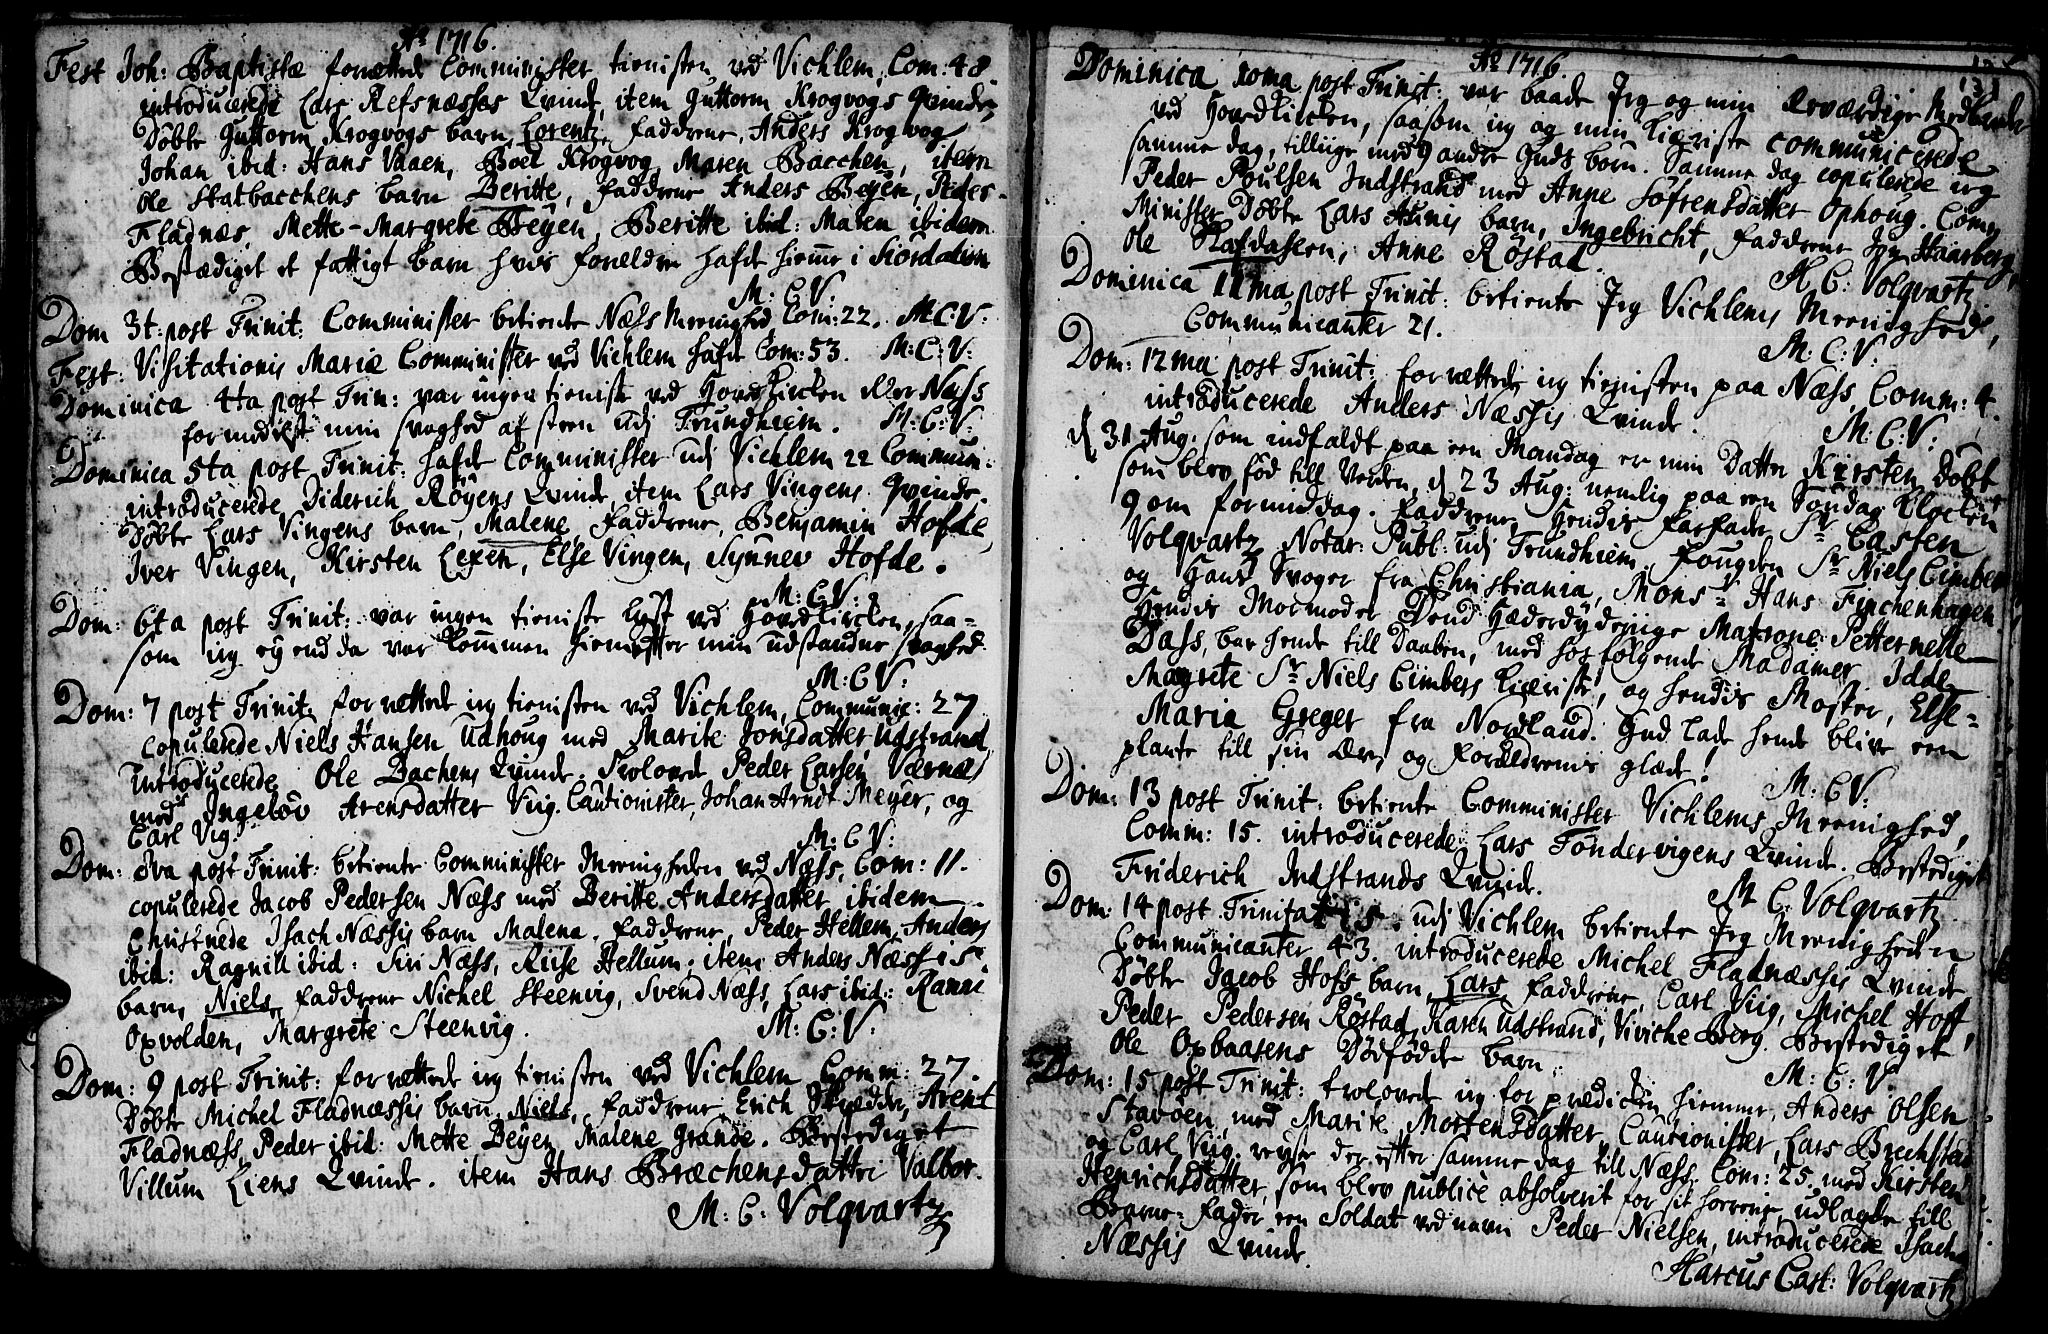 Aõ 1716.
Fest Joh: Baptistæ forrettede Comminister tienisten ved Vichlem, Com: 48.
introducerede Lars Refsnæsses Qvinde, item Guttorm Krogvogs Qvinde,
Döbte Guttorm Krogvogs barn, Lorentz, faddrene, Anders Krogvog
Johan ibid: Hans Vaaen, Boel Krogvog, Maren Bacchen, item
Ole Statbacchens barn Beritte, faddrene Anders Beyen, Peder
Fladnæs, Mette-Margrete Beyen, Beritte ibid: Malen ibidem
Bestædiget et fattigt barn hvis forældre hafde hiemme i Stordalen
M: C: V:
Dom 3t: post Trinit: Comminister betiente Næss Menighed, Com: 22. M:C:V:
Fest: Visitationis Mariæ Comminister ved Vichlem hafde Com: 53. M:C:V:
Dominica 4ta post Trin: var ingen tieniste ved Hovedkircken eller Næss
formedelst min svaghed af steen udj Trundhiem. M:C:V:
Dominica 5ta post Trinit: hafde Comminister udj Vichlem 22 Commun:
introducerede Diderich Röyens Qvinde, item Lars Vingens Qvinde.
Döbte Lars Vingens barn, Malene, faddrene, Benjamin Hofde,
Iver Vingen, Kirsten Lexen, Else Vingen, Synnev Hofde.
M: C: V:
Dom: 6ta post Trinit: var ingen tieniste holt ved Hovedkircken, saa=
som ieg ey endda var kommen hiem efter min udstandne svaghed
M: C V:
Dom: 7 post Trinit: forrettede ieg tienisten ved Vichlem, Communic: 27
Copulerede Niels Hansen Udhoug med Marite Jonsdatter Udstrand
Introducerede Ole Bachens Qvinde. Trolovede Peder Larsen Værnæs
med Ingebör Arensdatter Viig. Cautionister, Johan Arndt Meyer, og
Carl Viig.
M: C V:
Dom: 8va post Trinit: betiente Comminister Meenigheden ved Næss, Com: 11.
copulerede Jacob Pedersen Næss med Beritte Andersdatter ibidem.
Christnede Isach Næssis barn Malena. faddrene, Peder Hellem, Anders
ibid: Ragnill ibid: Siri Næss, Kiise Hellum. item Anders Næssis
barn, Niels, faddrene Nichel Steenvig, Svend Næss, Lars ibid: Ranni
Opvolden, Margrete Steenvig.
M: C: V:
Dom: 9 post Trinit: forrettede ieg tienisten ved Vichlem Comm: 27.
Döbte Michel Fladnæssis barn, Niels, faddrene, Erich Skrædder, Arent
Fladnæss, Peder ibid: Mette Beyen, Malene Grande. Bestediget
Villum Liens Qvinde. item Hans Bræchens datter Valbor.
M: C: Volqvartz
Aõ 1716.
Dominica 10ma post Trinit: var baade Jeg og min ærværdige Medbroder
ved Hovedkircken, saasom ieg og min kiæriste communicerede
samme dag, tilliige med 9 andre Guds börn. Samme dag copulerede ieg
Peder Poulsen Indstrand med Anne Söfrensdatter Ophoug. Com=
Minister Döbte Lars Aunis barn, Ingebricht, faddrene Jon Haarberg,
Ole Stafdasern, Anne Röstad.
M: C: Volqvartz
Dominica 11ma post Trinit: betiente Jeg Vichlems Meenighed,
Communicanter 21.
M: C: V:
Dom: 12ma post Trinit: forrettede ieg tienisten paa Næss, Comm: 4.
introducerede Anders Næssis Qvinde.
M: C: V:
d 31 Aug: som indfaldt paa een Mandag er min Datter Kirsten Döbt
som blev föd till Verden, d 23 Aug: nemlig paa een Söndag Klocken
9 om formiddag. faddrene, Hendis farfader, Sr Casten
Volqvartz Notar: Publ: udj Trundhiem. Fougden Sr Niels Cimber
og Hans Svoger fra Christiania, Mons= Hans Finchenhagen
Hendis Mormoder Dend Hæderdydrige Matrone Petternelle
Dass, bar hende till Daaben, med hosfölgende Madamer, Idde
Magrete Sr Niels Cimbers kiæriste, og hendis Moster, Else=
Maria Greger fra Nordland. Gud lade hende blive een
plante till sin Ære, og forældrenis glæde!
M: C V:
Dom: 13 post Trinit: betiente Comminister Vichlems Meenighed,
Comm: 15. introducerede Lars Töndervigens Qvinde. Bestediget
Friderich Indstrands Qvinde.
M C. Volqvartz
Dom: 14 post Trinitatis. udj Vichlem betiente Jeg Meenigheden
Communicanter 43. introducerede Michel Fladnæssis Qvinde
Döbte Jacob Hofs barn, Lars, faddrene, Carl Viig, Michel Hoff,
Peder Pedersen Röstad, Karen Udstrand, Viviche Berg. Bestediget
Ole Opbaasens Dödfödde barn.
M: C: V.
Dom: 15 post Trinit: trolovede ieg for prædicken hiemme, Anders Olsen
Stavöen, med Marite Mortensdatter, Cautionister, Lars Brechstad
og Carl Viig. reyste der efter samme dag till Næss, Com: 25. med Kirsten
Henrichsdatter, som blev publicè absolverit for sit horrerie, udlagde till
Barne-Fader een Soldat ved navn Peder Nielsen, introducerede Isach
Næssis Qvinde.
Marcus Cast: Volqvartz